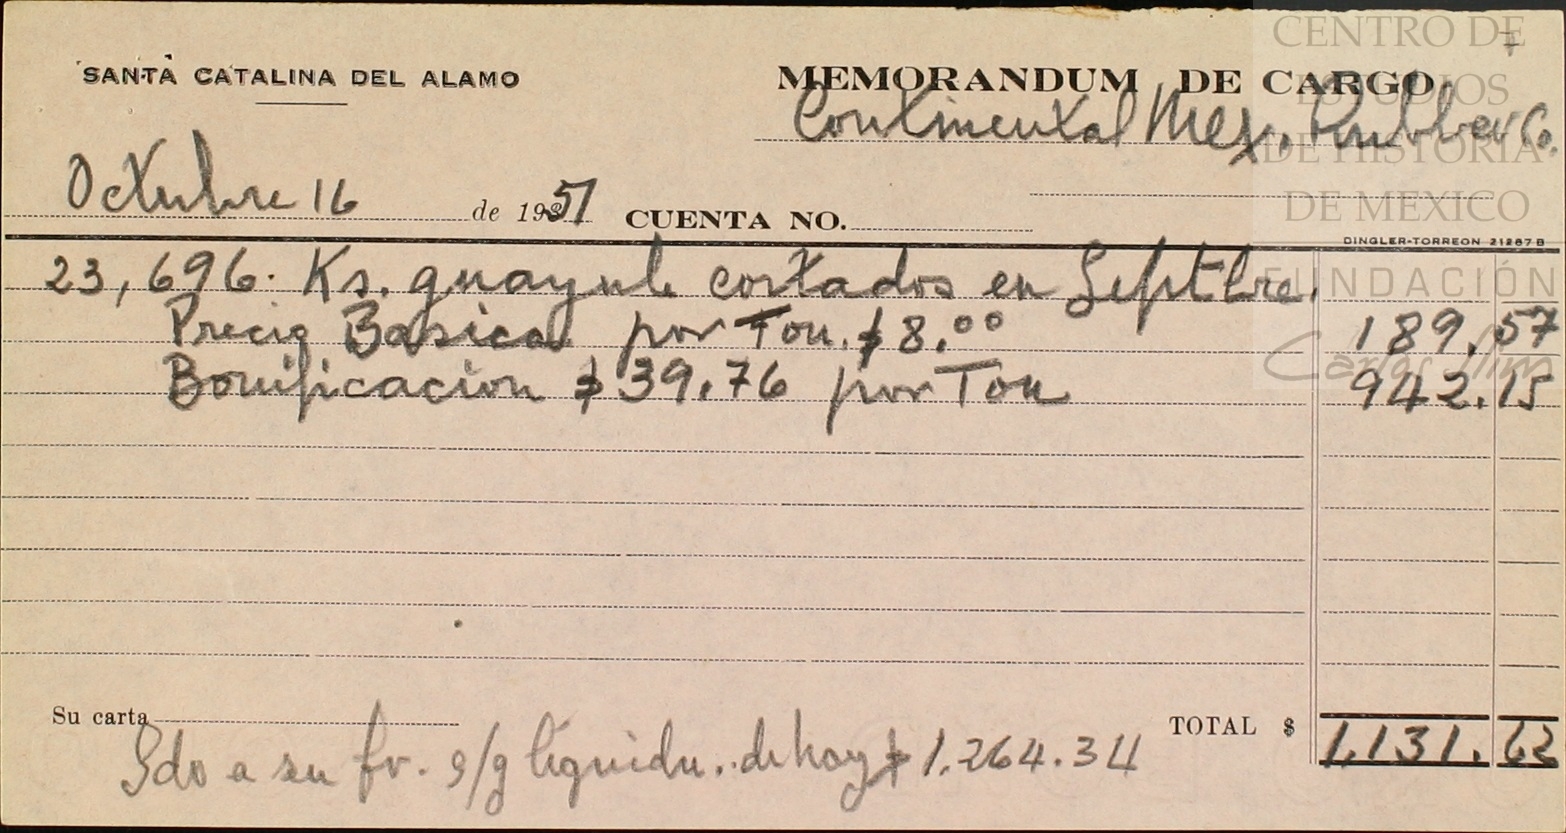 SANTA CATALINA DEL ALAMO
MEMORANDUM DE CARGO
Continental Mex. Rubber Co.
Octubre 16 de 1951 CUENTA NO.
DINGLER-TORREON 21267 B
23,696. Ks. guayule cortados en Septbre.
Precio Basico por Ton. $8.00 189.57
Bonificacion $39.76 por Ton 942.15
Su carta
TOTAL $ 1,131.62
Sdo a su fv. s/g liquidn. de hoy $1.264.34
CENTRO DE
ESTUDIOS
DE HISTORIA
DE MEXICO
FUNDACIÓN
Carlos Slim